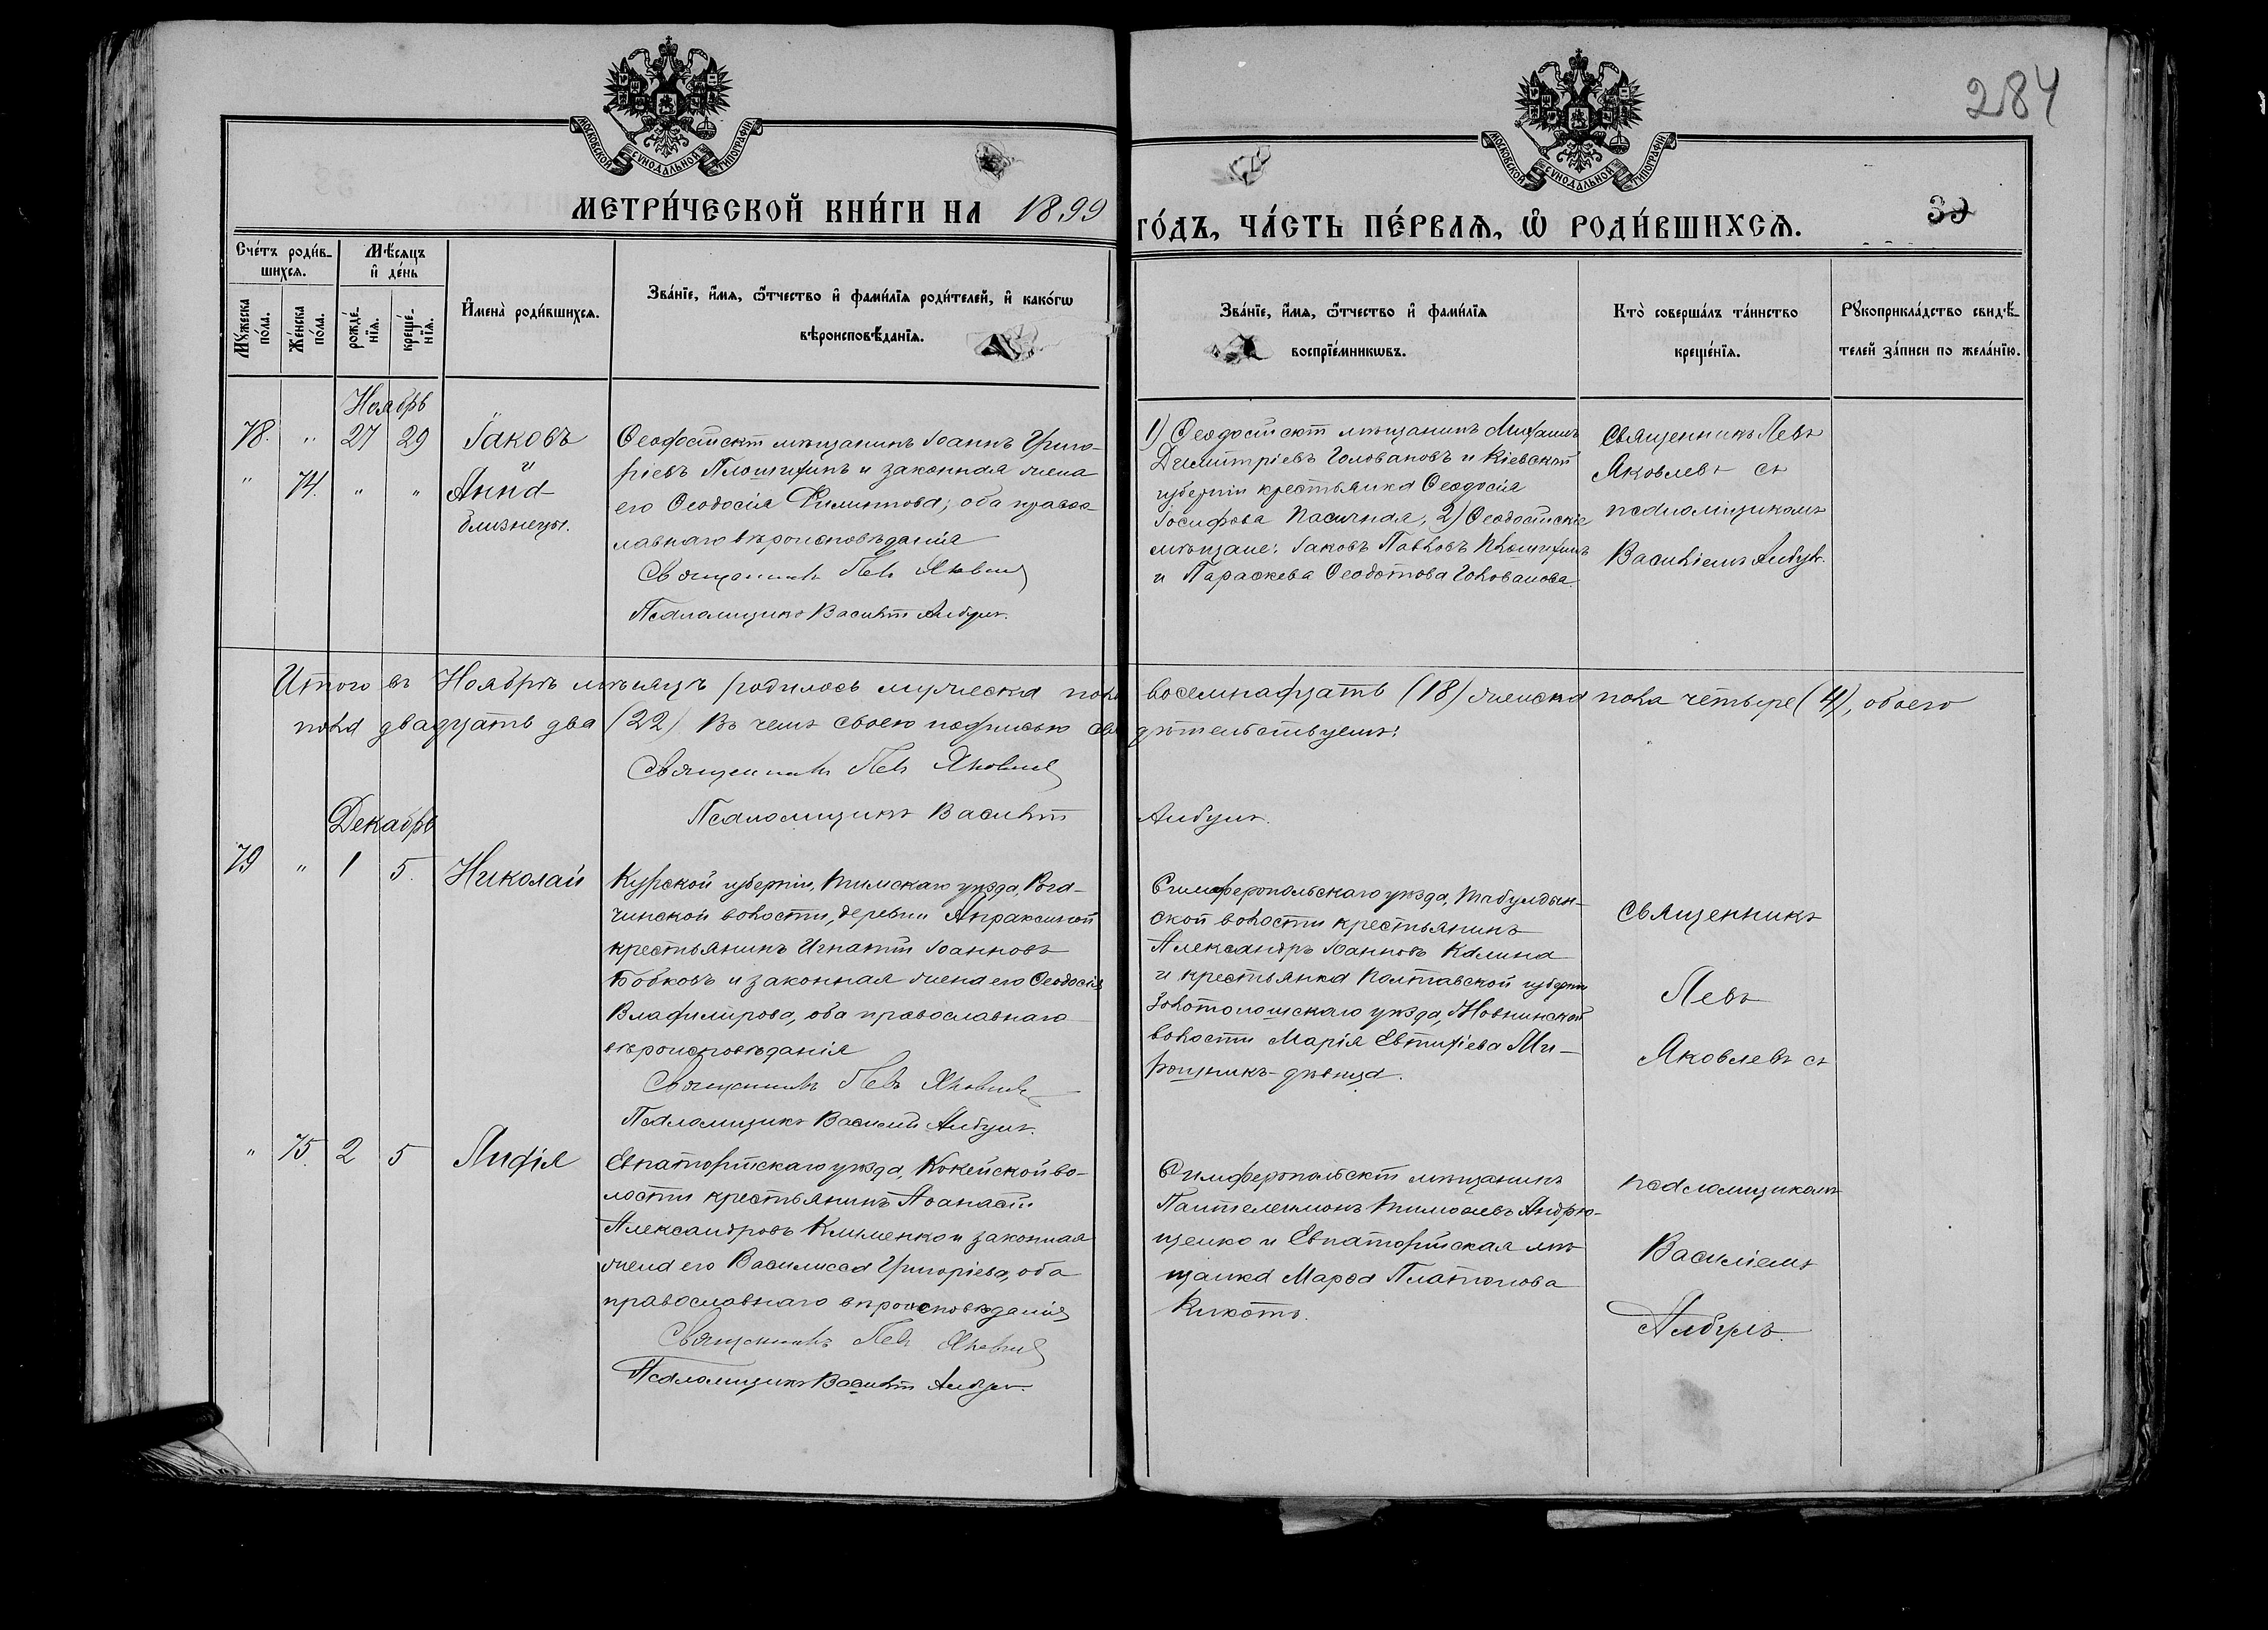 284
МОСКОВСКОЙ СѴНОДАЛЬНОЙ ТИПОГРАФІИ
МОСКОВСКОЙ СѴНОДАЛЬНОЙ ТИПОГРАФІИ
МЕТРИ́ЧЕСКОЙ КНИ́ГИ НА 1899
ГО́ДЪ, ЧА́СТЬ ПЕ́РВАѦ, Ѡ҆ РОДИ́ВШИХСѦ.
39
Сче́тъ роди́в-
шихсѧ.
Мѣ́сѧцъ
и҆ де́нь
Мꙋ́жеска
по́ла.
Же́нска
по́ла.
рожде́-
нїѧ.
креще́-
нїѧ.
И҆мена̀ роди́вшихсѧ.
Зва́нїе, и҆́мѧ, ѻ҆́тчество и҆ фами́лїѧ роди́телей, и҆ како́гѡ
вѣроисповѣ́данїѧ.
Зва́нїе, и҆́мѧ, ѻ҆́тчество и҆ фами́лїѧ
воспрїе́мникѡвъ.
Кто̀ соверша́лъ та́инство
креще́нїѧ.
Рꙋкоприкла́дство свидѣ́-
телей за́писи по жела́нїю.
Ноябрь
78. " 27 29 Іаковъ
" 74. " " и
Анна
близнецы.
Ѳеодосійскій мѣщанинъ Іоаннъ Григо-
ріевъ Плошихинъ и законная жена
его Ѳеодосія Филиппова; оба правос-
лавнаго вѣроисповѣданія
Священникъ Левъ Яковлевъ
Псаломщикъ Василій Албулъ.
1) Ѳеодосійскій мѣщанинъ Михаилъ
Димитріевъ Головановъ и Кіевской
губерніи крестьянка Ѳеодосія
Іосифова Пасичная; 2) Ѳеодосійскіе
мѣщане: Іаковъ Павловъ Плошихинъ
и Параскева Ѳеодотова Голованова.
Священникъ Левъ
Яковлевъ съ
псаломщикомъ
Василіемъ Албул.
Итого въ Ноябрѣ мѣсяцѣ родилось мужеска пола восемнадцать (18) женска пола четыре (4), обоего
пола двадцать два (22) Въ чемъ своею подписью свидѣтельствуемъ:
Священникъ Левъ Яковлевъ
Псаломщикъ Василій Албулъ.
Декабрь
79 " 1 5. Николай
Курской губерніи, Тимскаго уѣзда, Рога-
чинской волости, деревни Апраксиной
крестьянинъ Игнатій Іоанновъ
Бобковъ и законная жена его Ѳеодосія
Владимірова, оба православнаго
вѣроисповѣданія
Священникъ Левъ Яковлевъ
Псаломщикъ Василій Албулъ.
Симферопольскаго уѣзда, Табулдын-
ской волости крестьянинъ
Александръ Іоанновъ Калина
и крестьянка Полтавской губерніи
Золотоношскаго уѣзда,
волости Марія Евтихіева Ми-
рошникъ-дѣвица.
Священникъ
Левъ
Яковлевъ съ
" 75. 2 5 Лидія
Евпаторійскаго уѣзда, Кокейской во-
лости крестьянинъ Аѳанасій
Александровъ Клименко и законная
жена его Василисса Григоріева, оба
православнаго вѣроисповѣданія
Священникъ Левъ Яковлевъ
Псаломщикъ Василій Албулъ.
Симферопольскій мѣщанинъ
Пантелеимонъ Тимоѳеевъ Андрю-
щенко и Евпаторійская мѣ-
щанка Марѳа Платонова
Кикоть.
псаломщикомъ
Василіемъ
Албулъ.